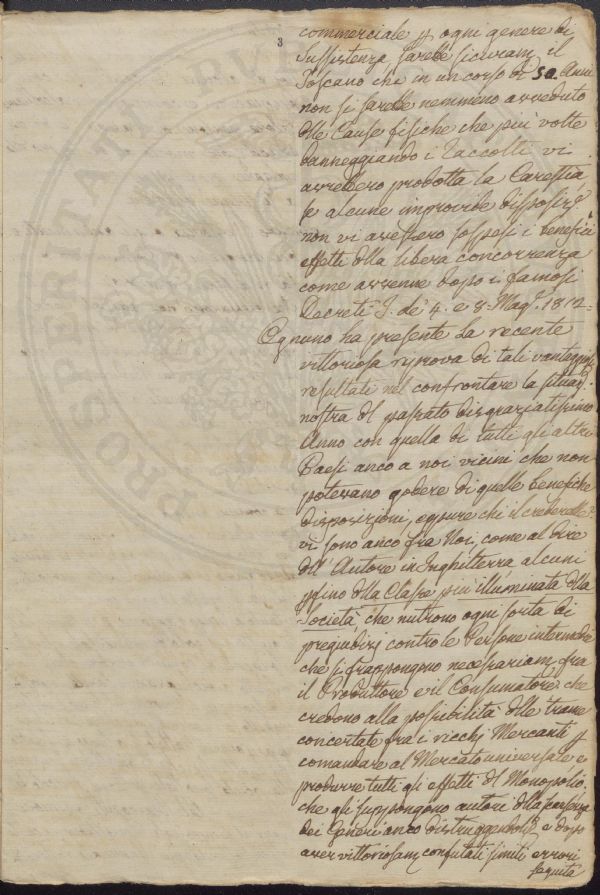 3
commerciale p ogni genere di
Sussistenza sarebe sicuram. il
Toscano che in un corso di 50. Anni
non si sarebe nemmeno avveduto
delle Cause fisiche che più volte
danneggiando i Raccolti vi
avrebero prodotta la Carestia
se alcune improvide disposiz.
non vi avessero sospesi i benefici
effetti della libera concorrenza
come avvenne dopo i famosi
Decreti de' 4. e 8. Mag. 1812
Ognuno ha presente la recente
vittoriosa riprova di tali vantaggiosi
resultati nel confrontare la situaz.
nostra del passato disgraziatissimo
Anno con quella di tutti gli altri
Paesi anco a noi vicini che non
potevano godere di quelle benefiche
disposizioni, eppure chi il crederebbe?
vi sono anco fra Noi, come al dire
dell'Autore in Inghilterra alcuni
pfino della Classe più illuminata della
Società, che nutrono ogni sorta di
pregiudizj contro le Persone intermedie
che si frappongono necessariam. fra
il Produttore e il Consumatore che
credono alla possibilità delle trame
concertate fra i ricchi Mercanti p
comandare al Mercato universale e
produrre tutti gli effetti del Monopolio,
che gli suppongono autori della
dei Generi anco distruggendoli, e dopo
aver vittoriosam. confutati simili errori
seguita
PROSPERITATI